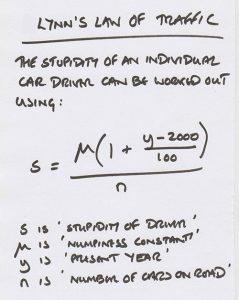 LYNN'S LAW OF TRAFFIC
THE STUPIDITY OF AN INDIVIDUAL
CAR DRIVER CAN BE WORKED OUT
USING:
s = μ(1 + (y-2000)/100)/n
s IS 'STUPIDITY OF DRIVER'
μ IS 'NUMPINESS CONSTANT'
y IS 'PRESENT YEAR'
n IS 'NUMBER OF CARS ON ROAD'